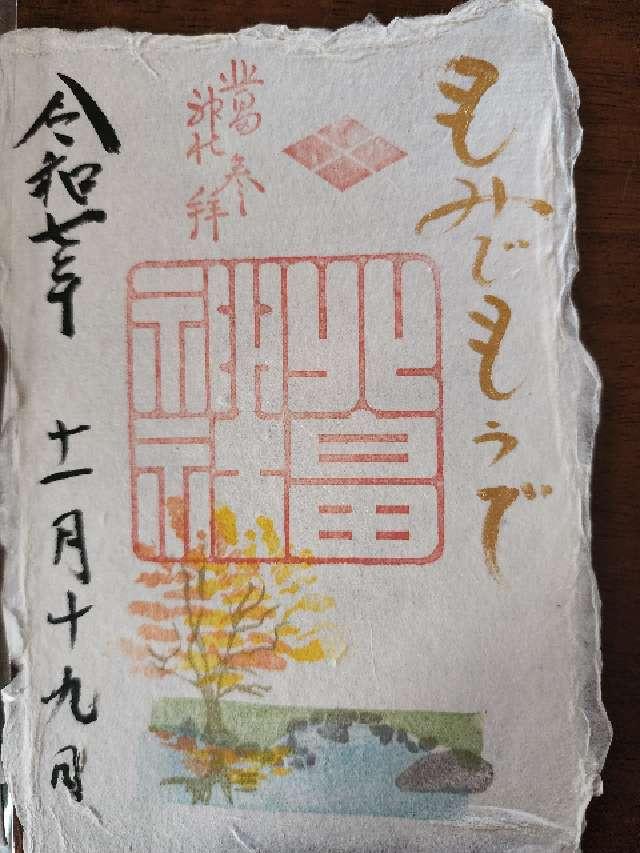 もみじもうで
北畠
神社
参拝
北畠
神社
令和七年 十一月十九日